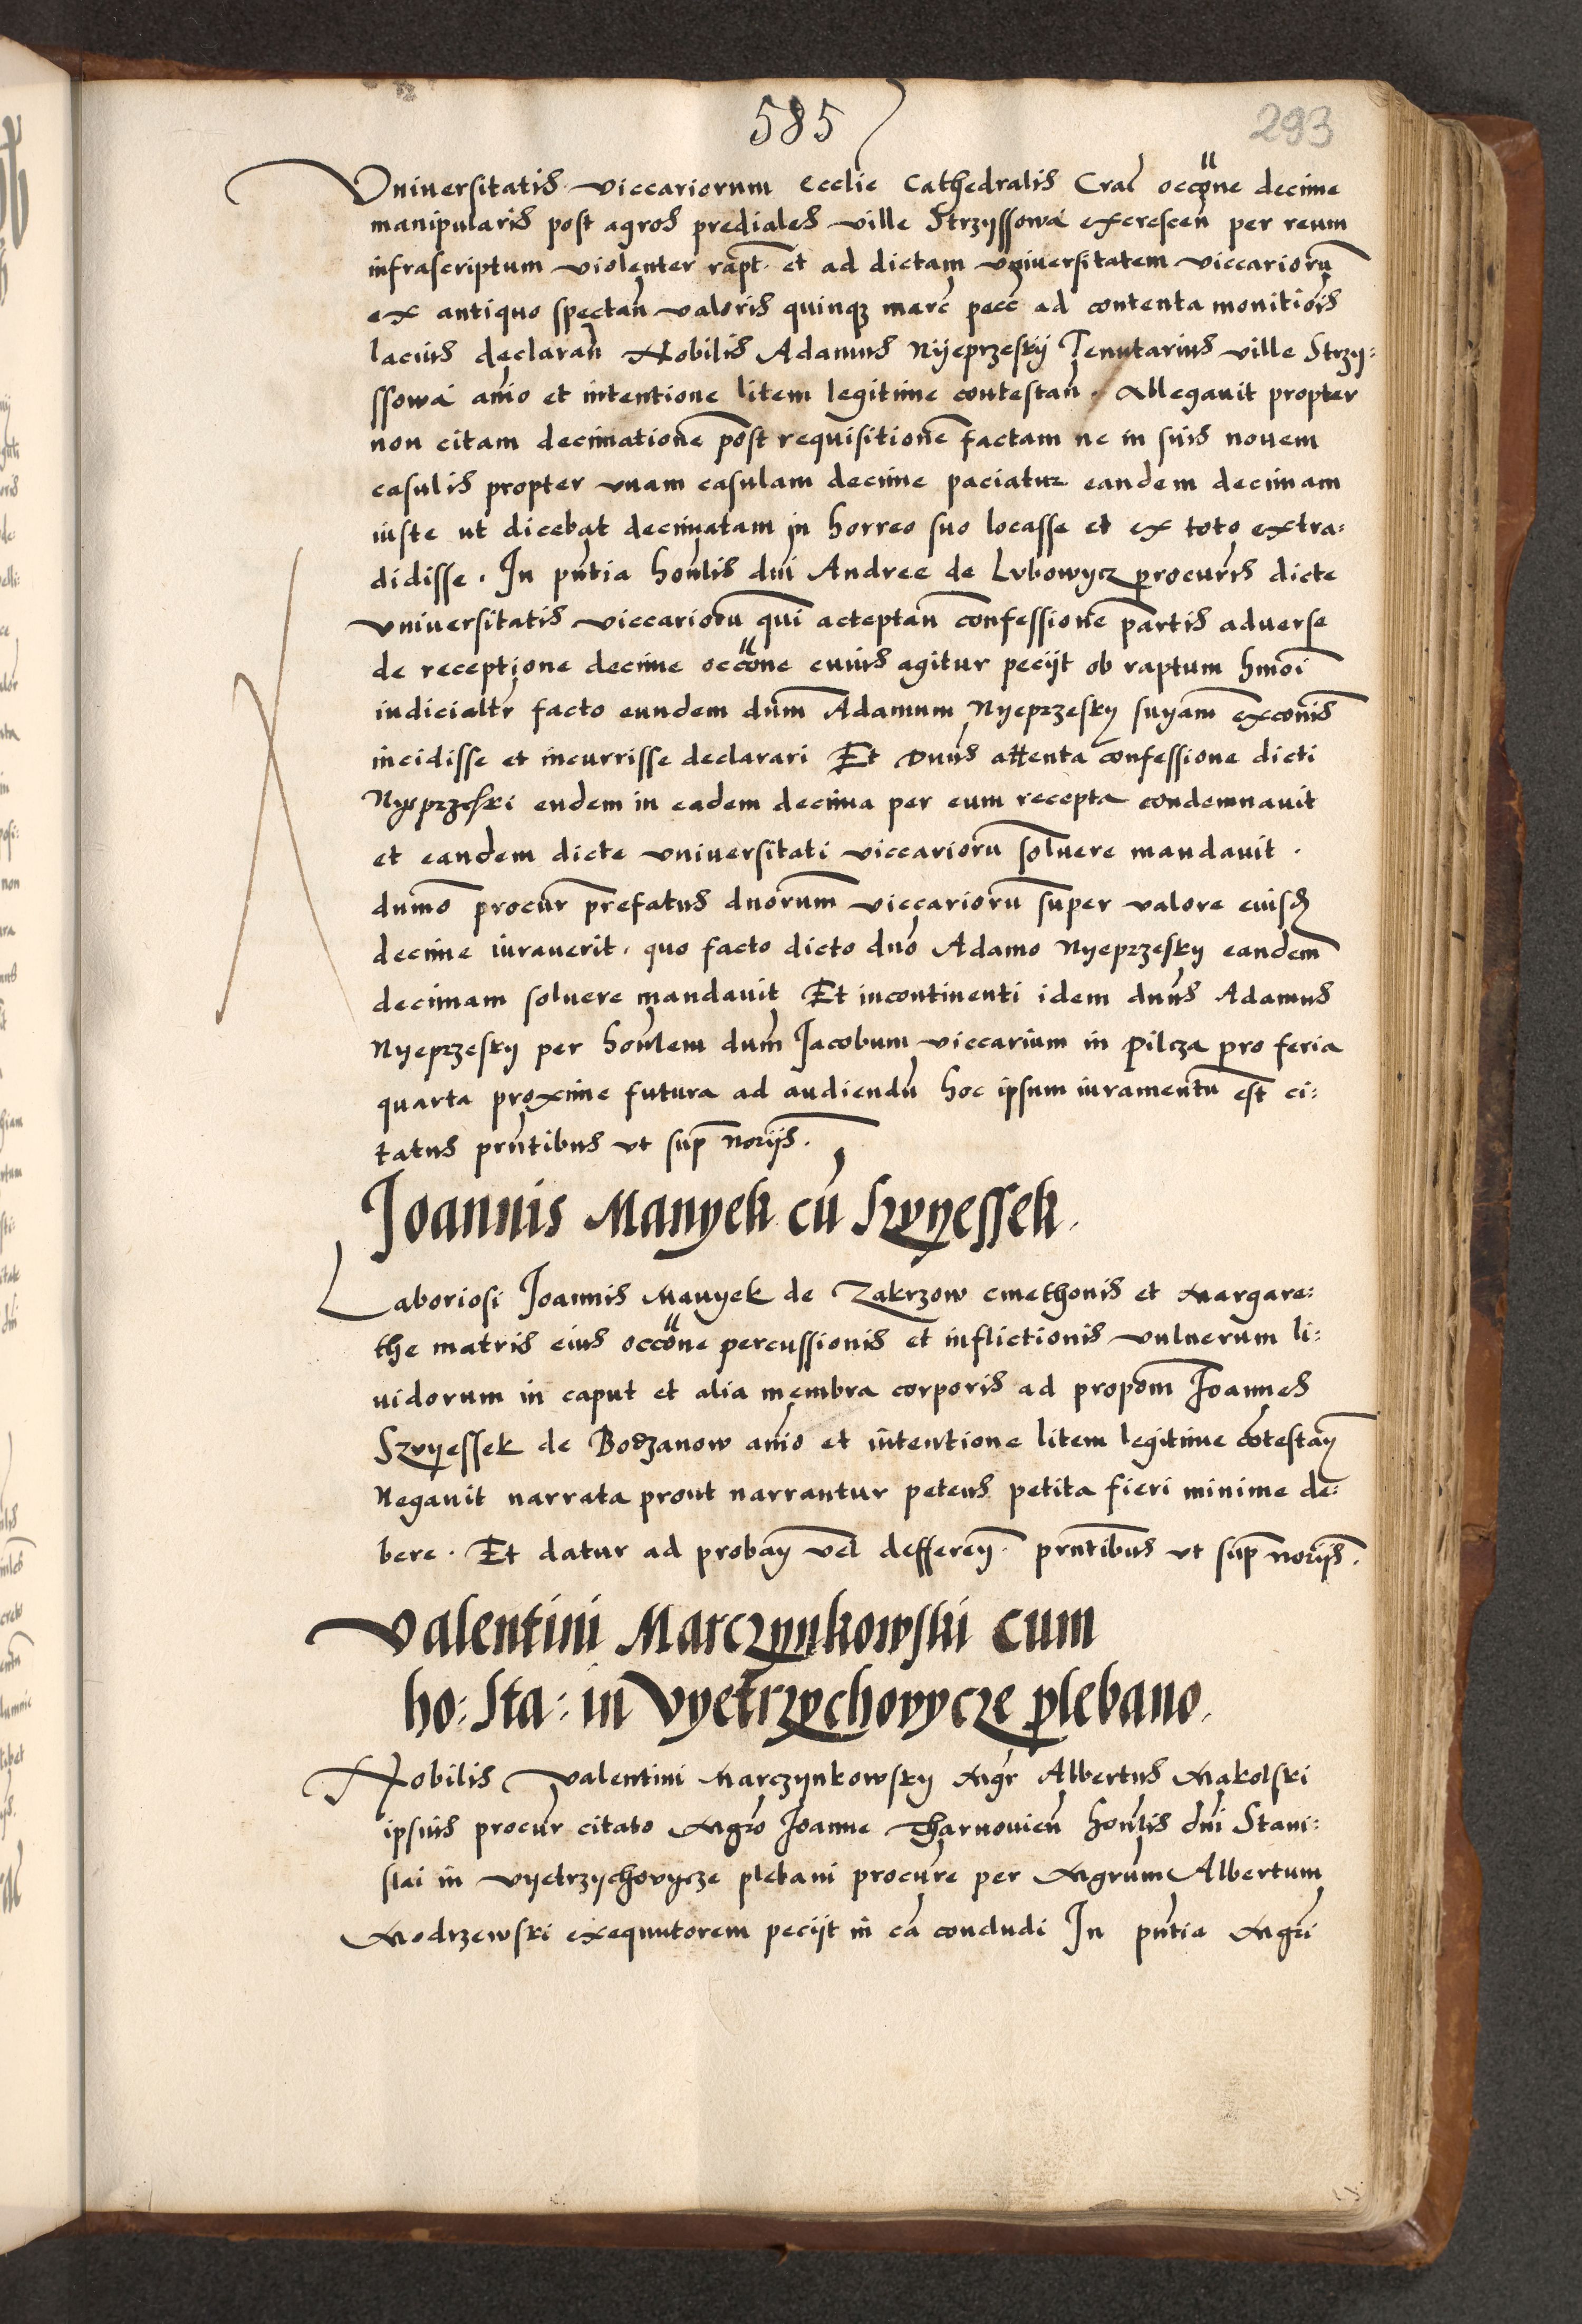 585
293
Vniuersitatis viccariorum Ecclie Cathedralis Crac̄ occōne decime
manipularis post agros prediales ville Strzyssowa excrescen̄ per reum
infrascriptum violenter rapt. et ad dictam vniuersitatem viccariorū
ex antiquo spectan̄ valoris quinqȝ marc̄ pecc̄ ad contenta monitiōis
lacius declaran̄ Nobilis Adamus Nyeprzesky Tenutarius ville Strzy:
ssowa aīo et intentione litem legitime contestan̄. Allegauit propter
non citam decimationē post requisitionē factam ne in suis nouem
casulis propter vnam casulam decime paciatur eandem decimam
iuste ut dicebat decimatam in horreo suo locasse et ex toto extra:
didisse. In pn̄tia hon̄lis dn̄i Andree de Lvbowycz procur̄is dicte
vniuersitatis viccariorū qui acceptan̄ confessionē partis aduerse
de receptione decime occōne cuius agitur peciit ob raptum hmōi
iudicialtr̄ facto eundem dn̄m Adamum Nyeprzesky suyam̄ excōnis
incidisse et incurrisse declarari Et Dn̄us attenta confessione dicti
Nyeprzeski eundem in eadem decima per eum recepta condemnauit
et eandem dicte vniuersitati viccariorū soluere mandauit.
dummō procur̄ prefatus dn̄orum viccariorū super valore eiusd̄
decime iurauerit. quo facto dicto dn̄o Adamo Nyeprzesky eandem
decimam soluere mandauit Et incontinenti idem dn̄us Adamus
Nyeprzesky per hon̄lem dn̄m Jacobum viccarium in Pilcza pro feria
quarta proxime futura ad audiendū hoc ipsum iuramentū est ci:
tatus prn̄tibus vt sup̄ norijs.
Joannis Manyek cū Szvyessek.
Laboriosi Joannis Manyek de Zakrzow cmethonis et Margare:
the matris eius occōne percussionis et inflictionis vulnerum li:
uidorum in caput et alia membra corporis ad propōm Joannes
Szvyessek de Bodzanow aīo et intentione litem legitime cōtestan̄
Negauit narrata prout narrantur petens petita fieri minime de:
bere. Et datur ad proban̄ vel defferen̄. prn̄tibus vt sup̄ norijs.
Valentini Marczynkowski cum
ho: Sta: in Vyetrzychovycze plebano.
Nobilis Valentini Marczynkowsky Mgr̄ Albertus Makolski
ipsius procur̄ citato Mgrō Joanne Tharnouien̄ hon̄lis dn̄i Stani:
slai in vyetrzychovycze plebani procur̄e per Mgrūm Albertum
Modrzewski exequutorem peciit in cā concludi In pn̄tia Mgrī